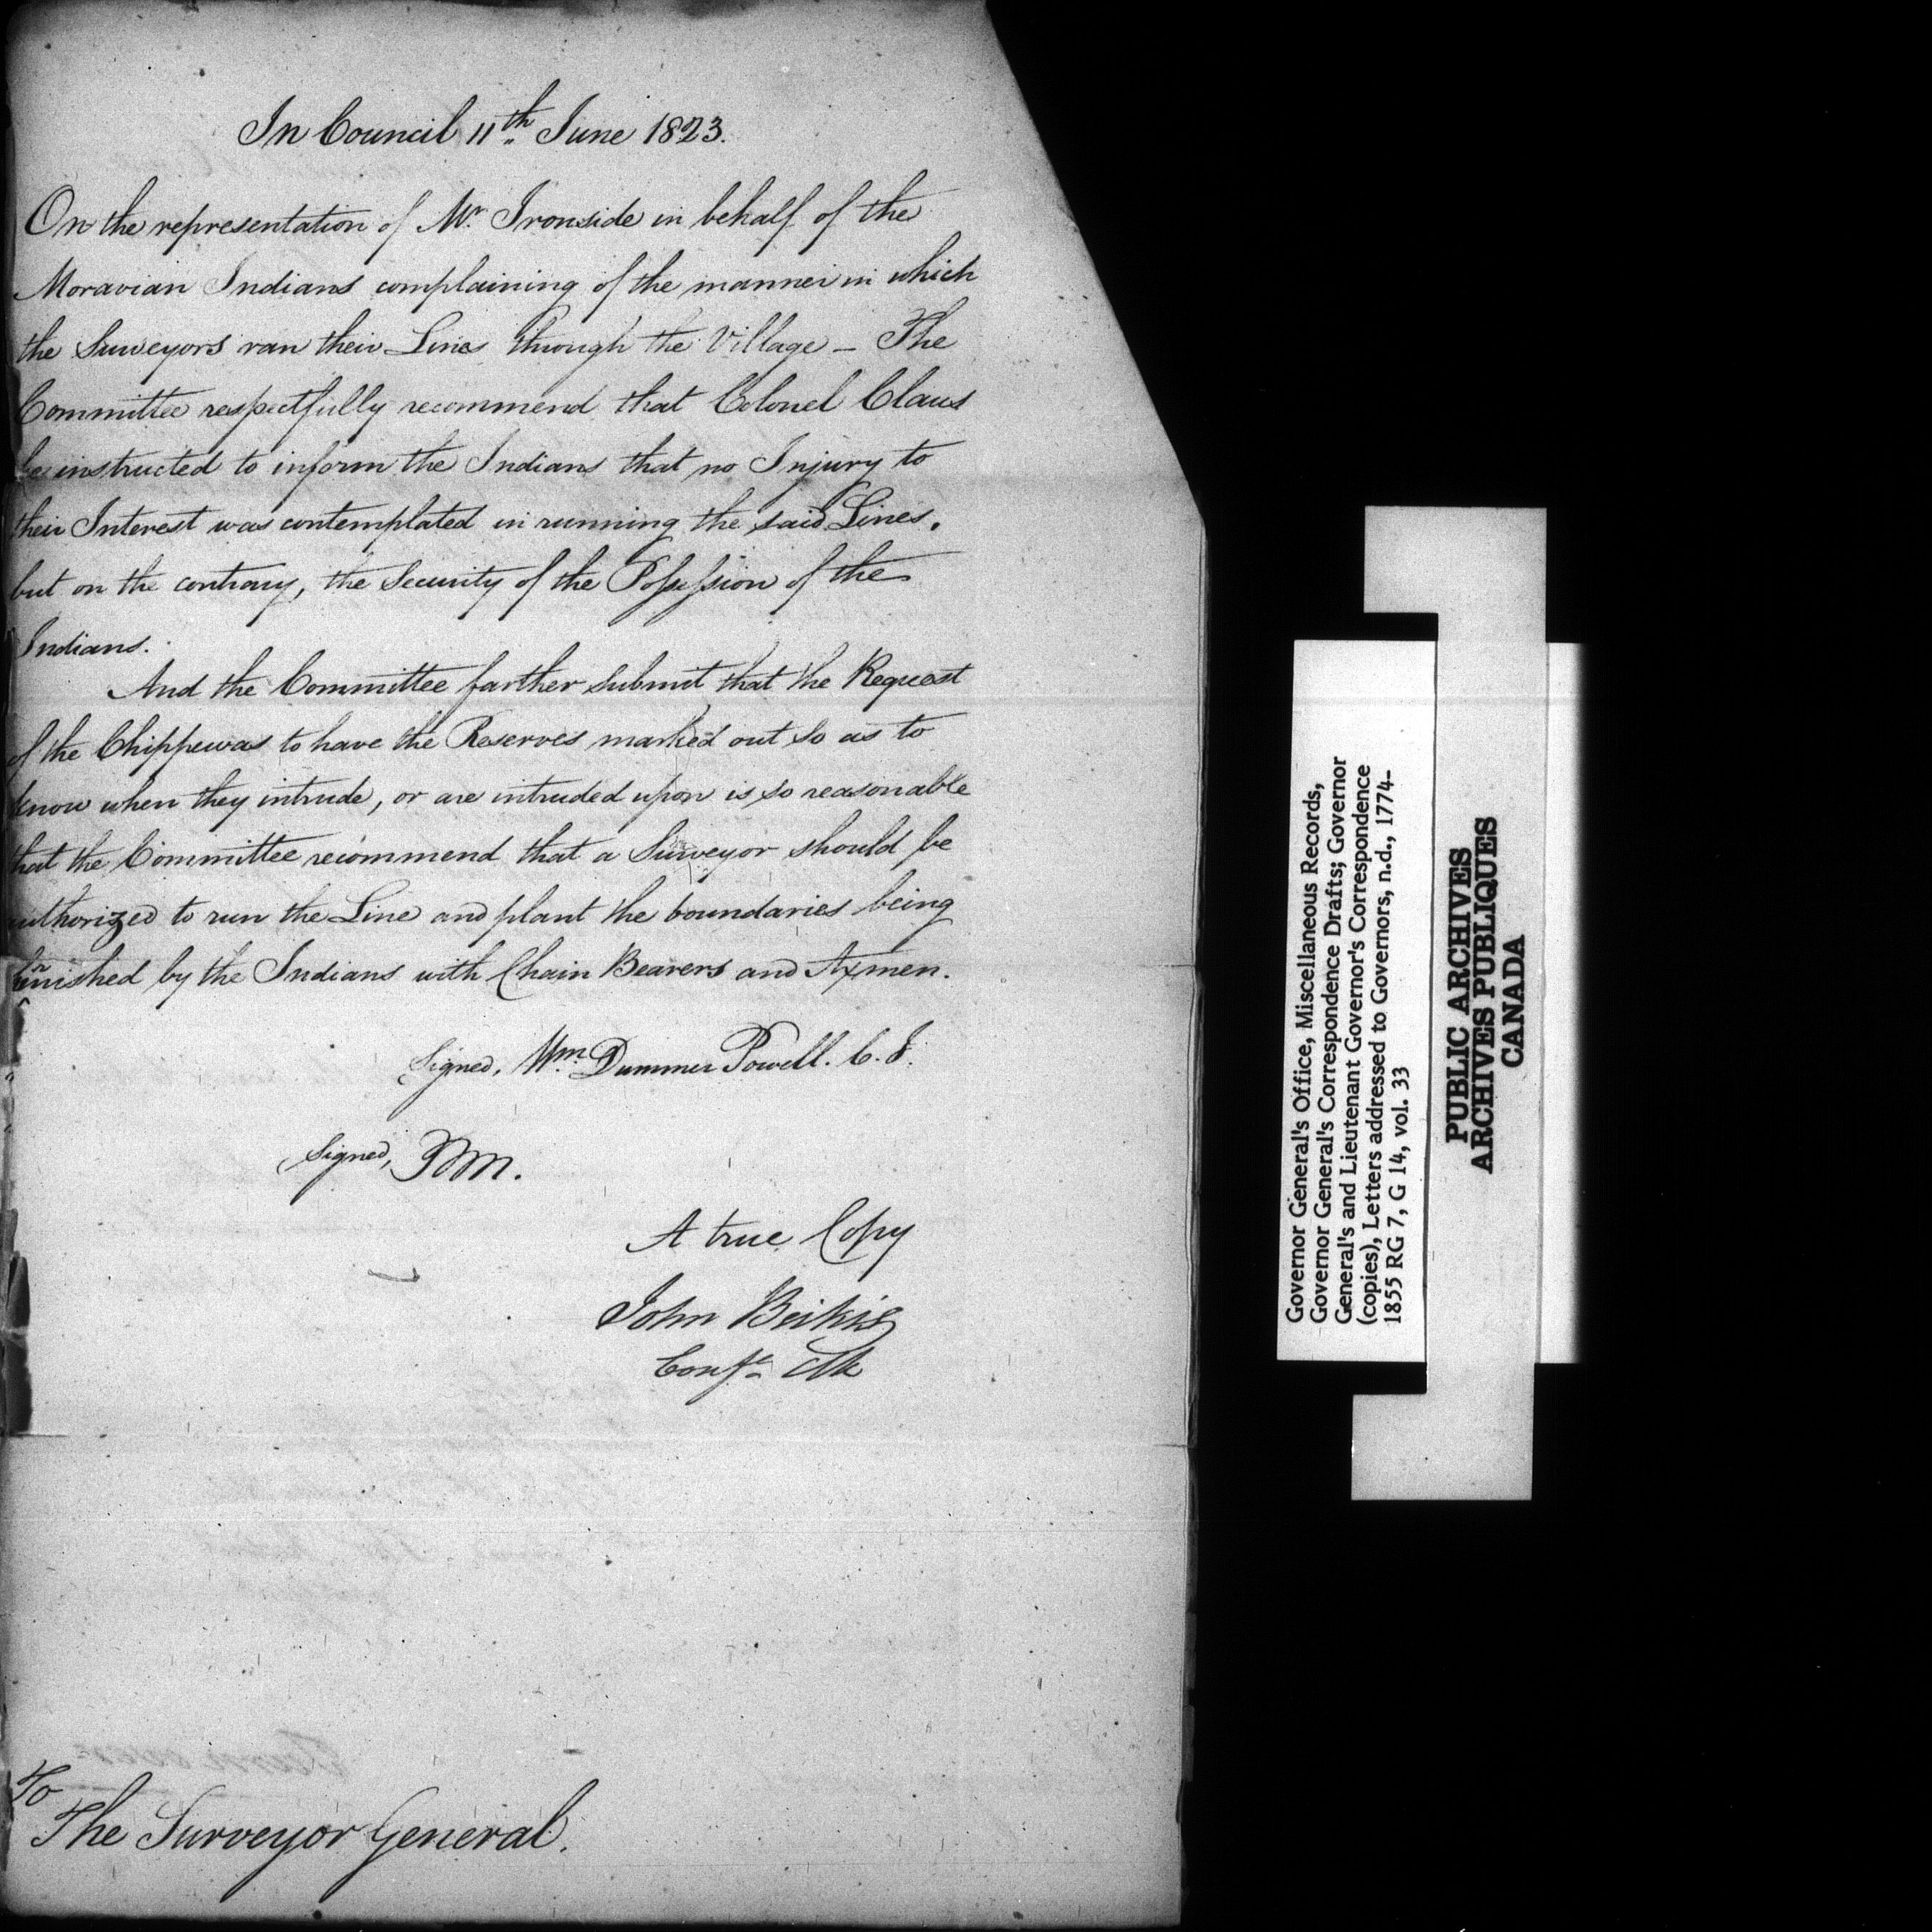 In Council 11th June 1823.
On the representation of Mr. Ironside in behalf of the
Moravian Indians complaining of the manner in which
the Surveyors ran their Lines through the Village – The
Committee respectfully recommend that Colonel Claus
be instructed to inform the Indians that no Injury to
their Interest was contemplated in running the said Lines.
but on the contrary, the Security of the Possession of the
Indians.
And the Committee farther submit that the Request
of the Chippewas to have the Reserves marked out so as to
know when they intrude, or are intruded upon is so reasonable
that the Committee recommend that a Surveyor should be
authorized to run the Line and plant the boundaries being
furnished by the Indians with Chain Bearers and Axmen.
Signed, Wm. Dummer Powell. C. J.
Signed, P.M.
A true Copy
John Beikie
Confl. Clk
To
The Surveyor General.
Governor General's Office, Miscellaneous Records,
Governor General's Correspondence Drafts; Governor
General's and Lieutenant Governor's Correspondence
(copies), Letters addressed to Governors, n.d., 1774-
1855 RG 7, G 14, vol. 33
PUBLIC ARCHIVES
ARCHIVES PUBLIQUES
CANADA